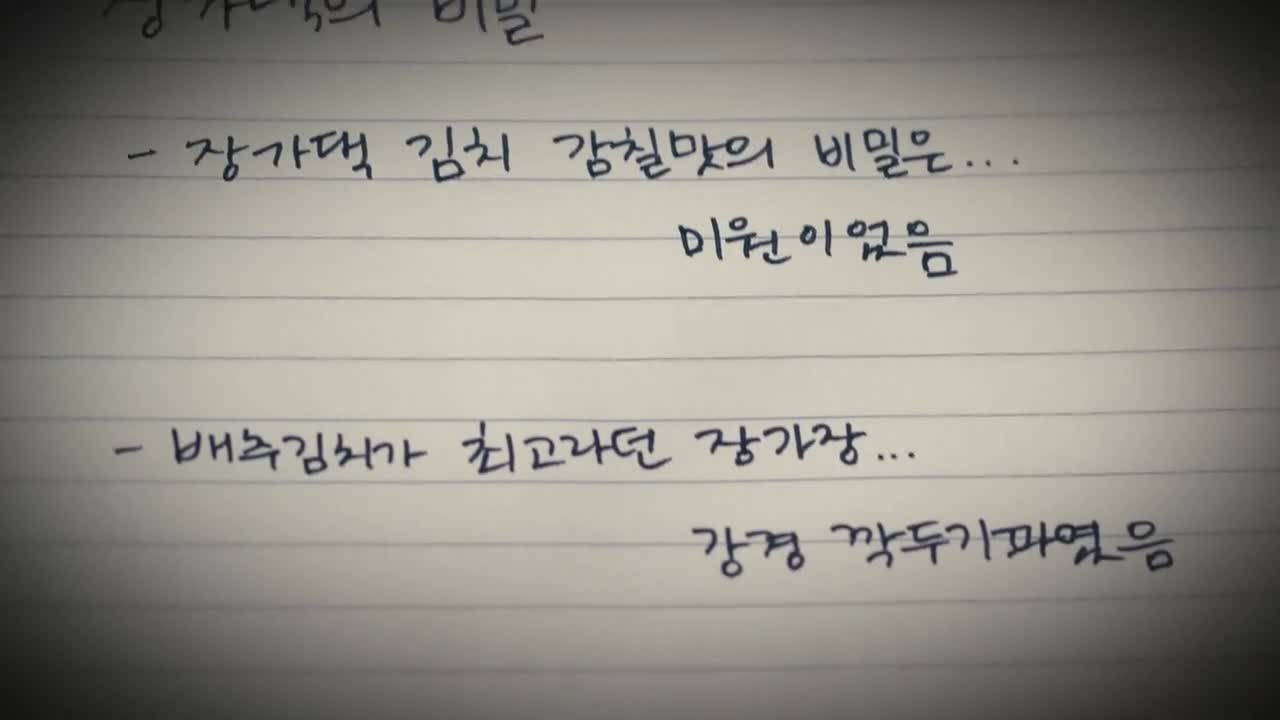 장가댁의 비밀
- 장가댁 김치 감칠맛의 비밀은...
미원이었음
- 배추김치가 최고라던 장가장...
강경 깍두기파였음